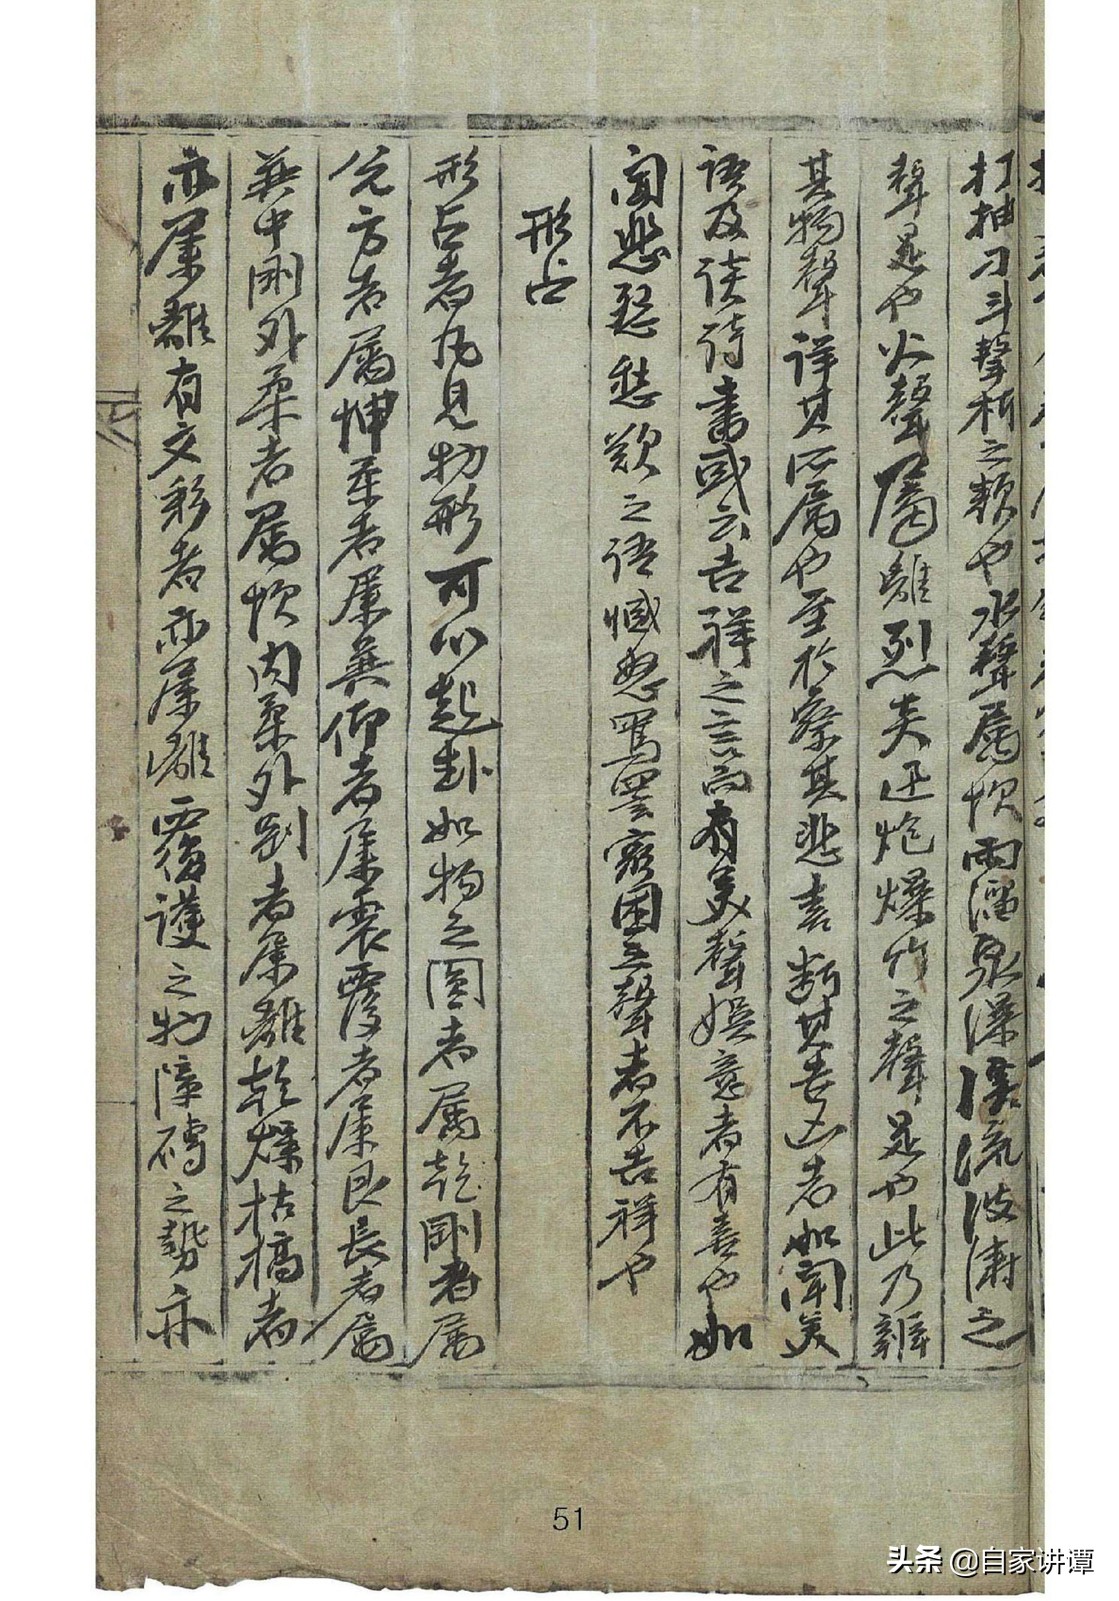 打抽刀斗擊柝之類也水聲屬坎雨溜泉瀑溪流波濤之
聲是也火聲屬離烈炎迅炮爆竹之聲是也此乃辨
其物聲詳其所屬也至於察其悲喜斷其吉凶者如聞美
語及談詩書或云吉祥之言而有美聲娛意者有喜也如
聞悲怒愁歎之語憾怒罵詈窮困之聲者不吉祥也
形占
形占者凡見物形可以起卦如物之圓者屬乾剛者屬
兌方者屬坤柔者屬巽仰者屬震覆者屬艮長者屬
巽中剛外柔者屬坎內柔外剛者屬離乾燥枯槁者
亦屬離有文彩者亦屬離覆護之物障礙之勢亦
51
头条 @自家讲谭